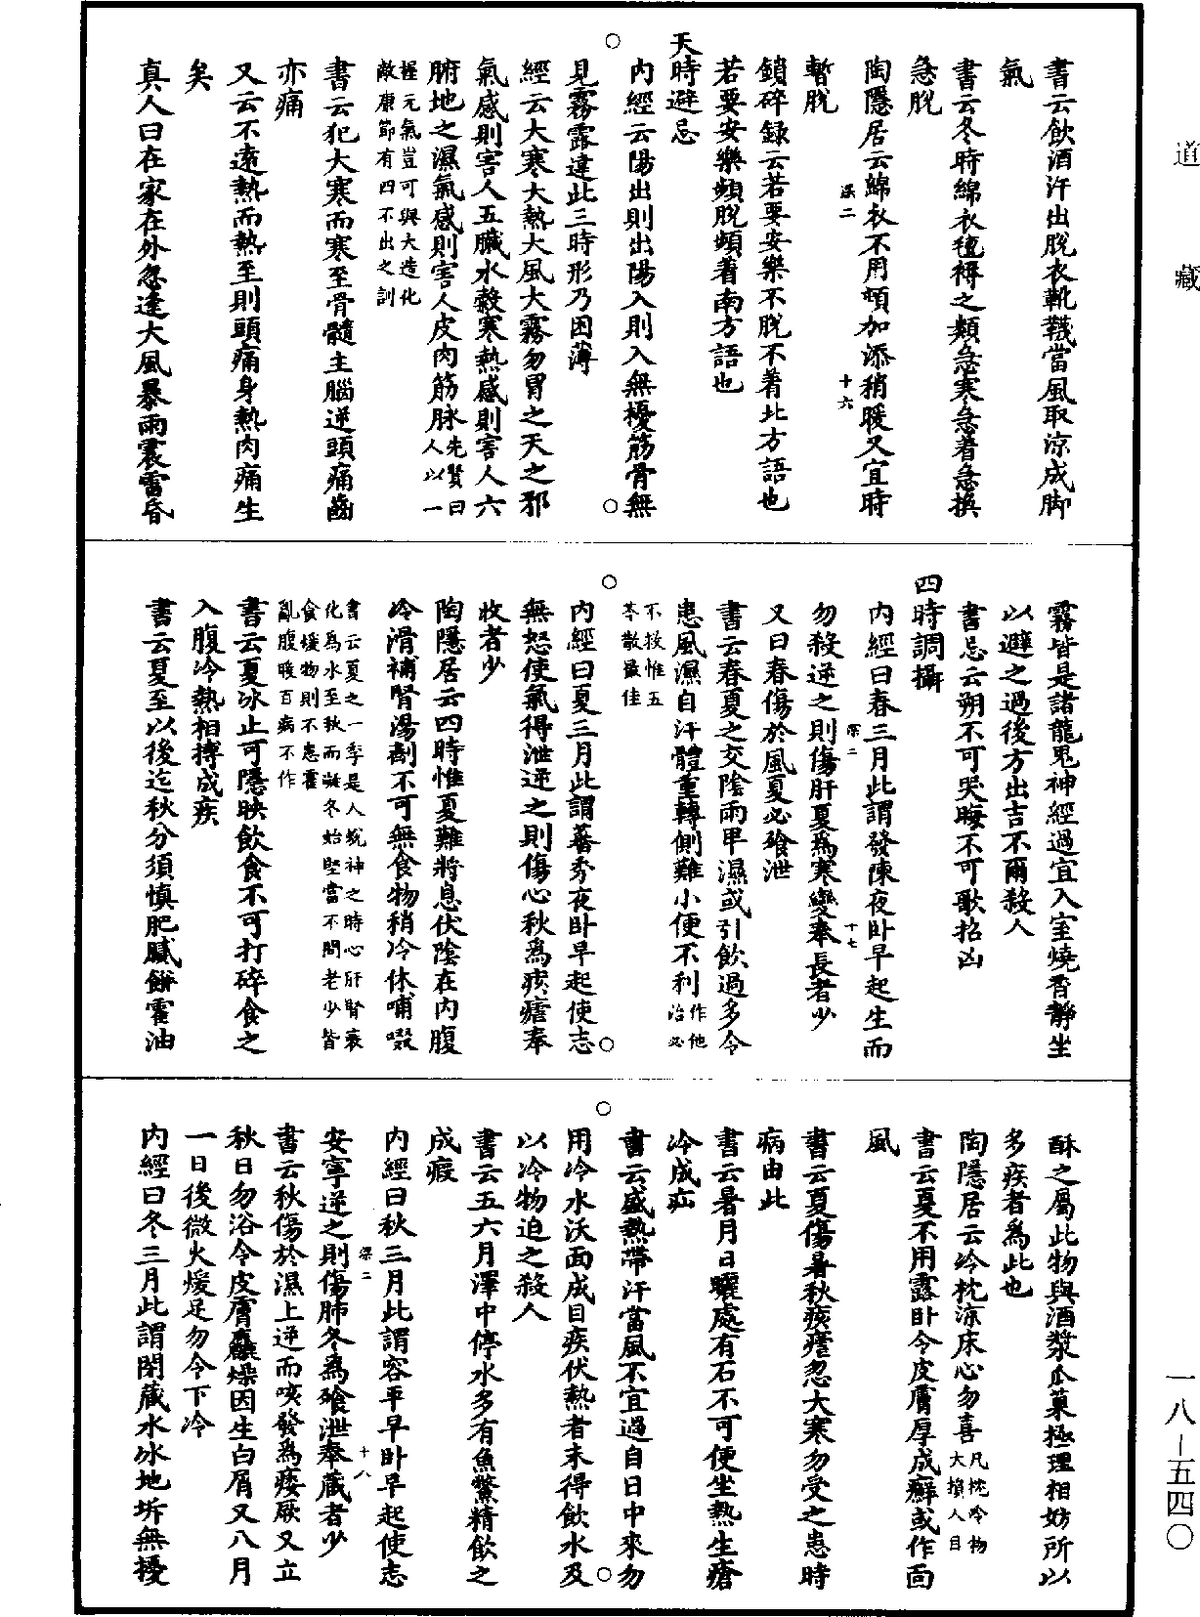 道藏
書云飲酒汗出脫衣靴韈當風取涼成脚
氣
書云冬時綿衣氊褥之類急寒急着急換
急脫
陶隱居云綿衣不用頓加添稍暖又宜時
暫脫
鎖碎録云若要安樂不脫不着北方語也
若要安樂頻脫頻着南方語也
天時避忌
內經云陽出則出陽入則入無擾筋骨無
見霧露違此三時形乃困薄
經云大寒大熱大風大霧勿冒之天之邪
氣感則害人五臟水穀寒熱感則害人六
腑地之濕氣感則害人皮肉筋脉先賢曰人以一
握元氣豈可與大造化
敵康節有四不出之訓
書云犯大寒而寒至骨髓主腦逆頭痛齒
亦痛
又云不遠熱而熱至則頭痛身熱肉痛生
矣
真人曰在家在外忽逢大風暴雨震雷昏
深二
十六
霧皆是諸龍鬼神經過宜入室燒香靜坐
以避之過後方出吉不爾殺人
書忌云朔不可哭晦不可歌招凶
四時調攝
內經曰春三月此謂發陳夜卧早起生而
勿殺逆之則傷肝夏爲寒變奉長者少
又曰春傷於風夏必飱泄
書云春夏之交陰雨卑濕或引飲過多令
患風濕自汗體重轉側難小便不利作他治必
不救惟五
苓散最佳
內經曰夏三月此謂蕃秀夜卧早起使志
無怒使氣得泄逆之則傷心秋爲痎瘧奉
收者少
陶隱居云四時惟夏難將息伏陰在內腹
冷滑補腎湯劑不可無食物稍冷休哺啜
書云夏之一季是人蛻神之時心肝腎衰
化爲水至秋而凝冬始堅當不問老少皆
食煖物則不患霍
亂腹暖百病不作
書云夏冰止可隱映飲食不可打碎食之
入腹冷熱相搏成疾
書云夏至以後迄秋分須慎肥膩餅霍油
深二
十七
酥之屬此物與酒漿瓜菓極理相妨所以
多疾者爲此也
陶隱居云冷枕涼床心勿喜凡枕冷物大損人目
書云夏不用露卧令皮膚厚成癬或作面
風
書云夏傷暑秋痎瘧忽大寒勿受之患時
病由此
書云暑月日曬處有石不可便坐熱生瘡
冷成疝
書云盛熱帶汗當風不宜過自日中來勿
用冷水沃面成目疾伏熱者未得飲水及
以冷物迫之殺人
書云五六月澤中停水多有魚鱉精飲之
成瘕
內經曰秋三月此謂容平早卧早起使志
安寧逆之則傷肺冬爲飱泄奉藏者少
書云秋傷於濕上逆而咳發爲痿厥又立
秋日勿浴令皮膚麤燥因生白屑又八月
一日後微火煖足勿令下冷
內經曰冬三月此謂閉藏水冰地坼無擾
深二
十八
一八—五四〇